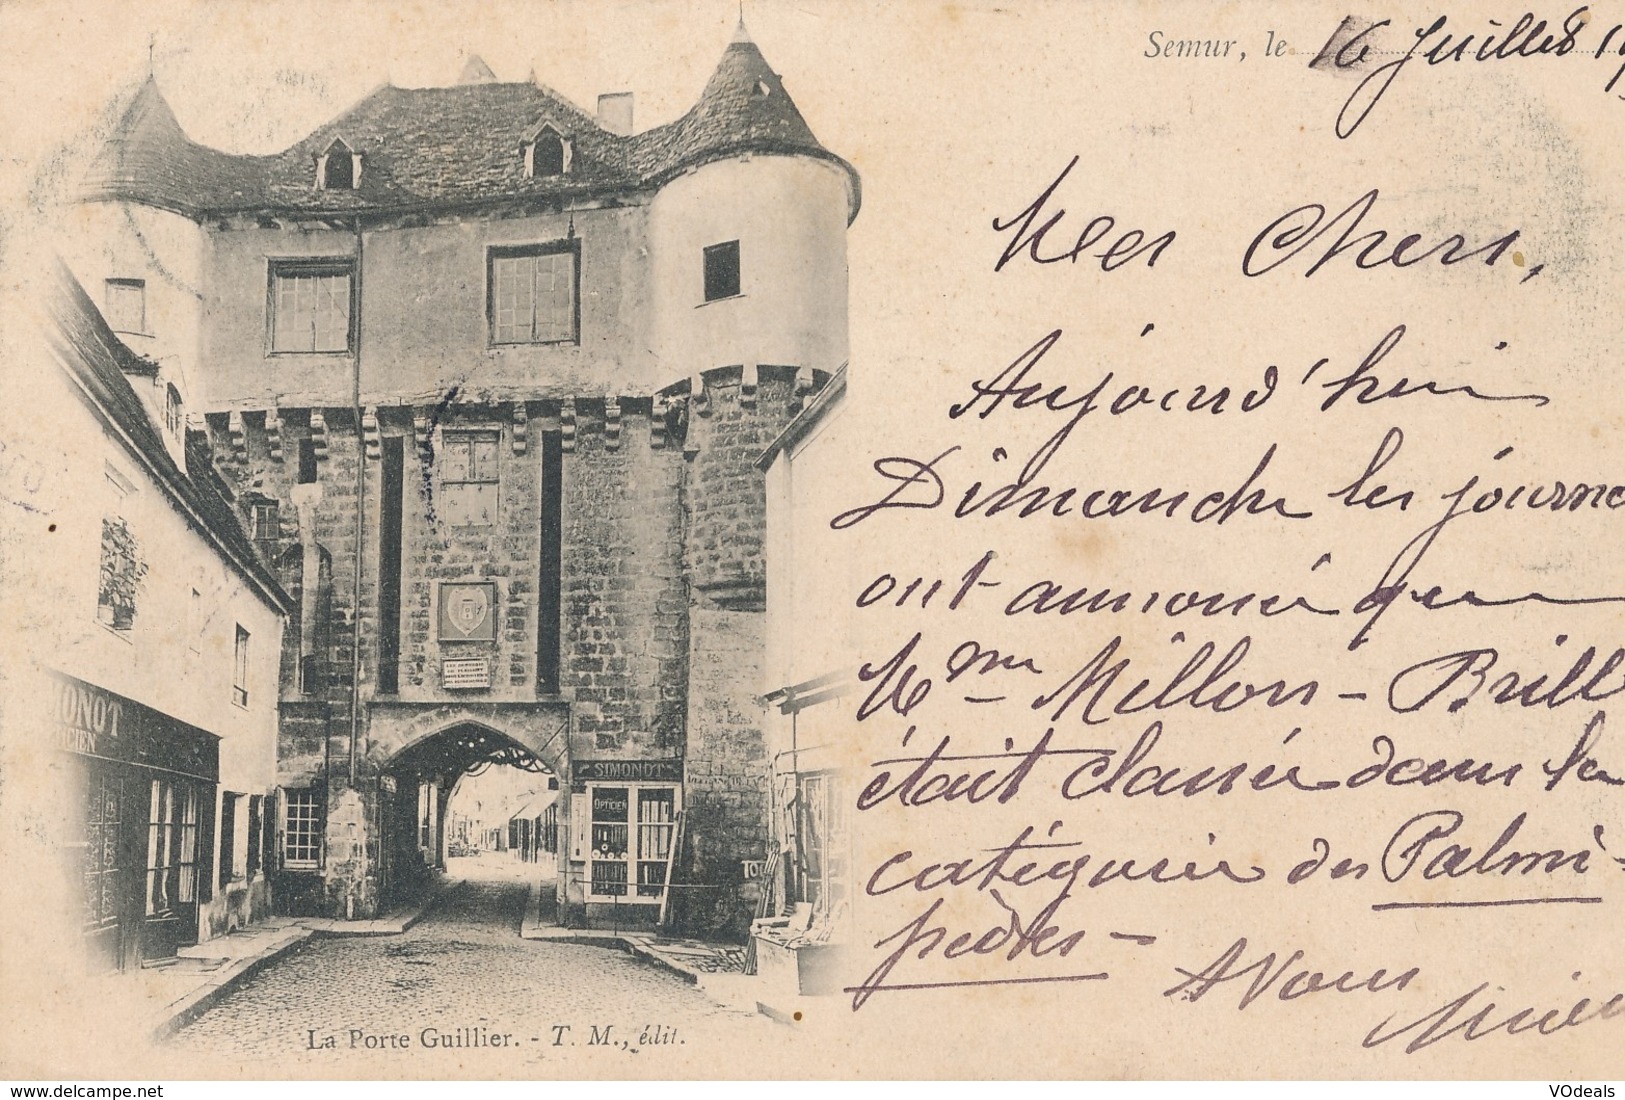 Semur, le 16 Juillet 19
Mes Chers,
Aujourd'hui
Dimanche les journa
ont annoncé que
Mme Millon-Brill
était classée dans la
catégorie des Palmi-
pèdes -
A Vous
MONOT
ICIEN
SIMONOT
OPTICIEN
La Porte Guillier. - T. M., édit.
delcampe.net
VOdeals